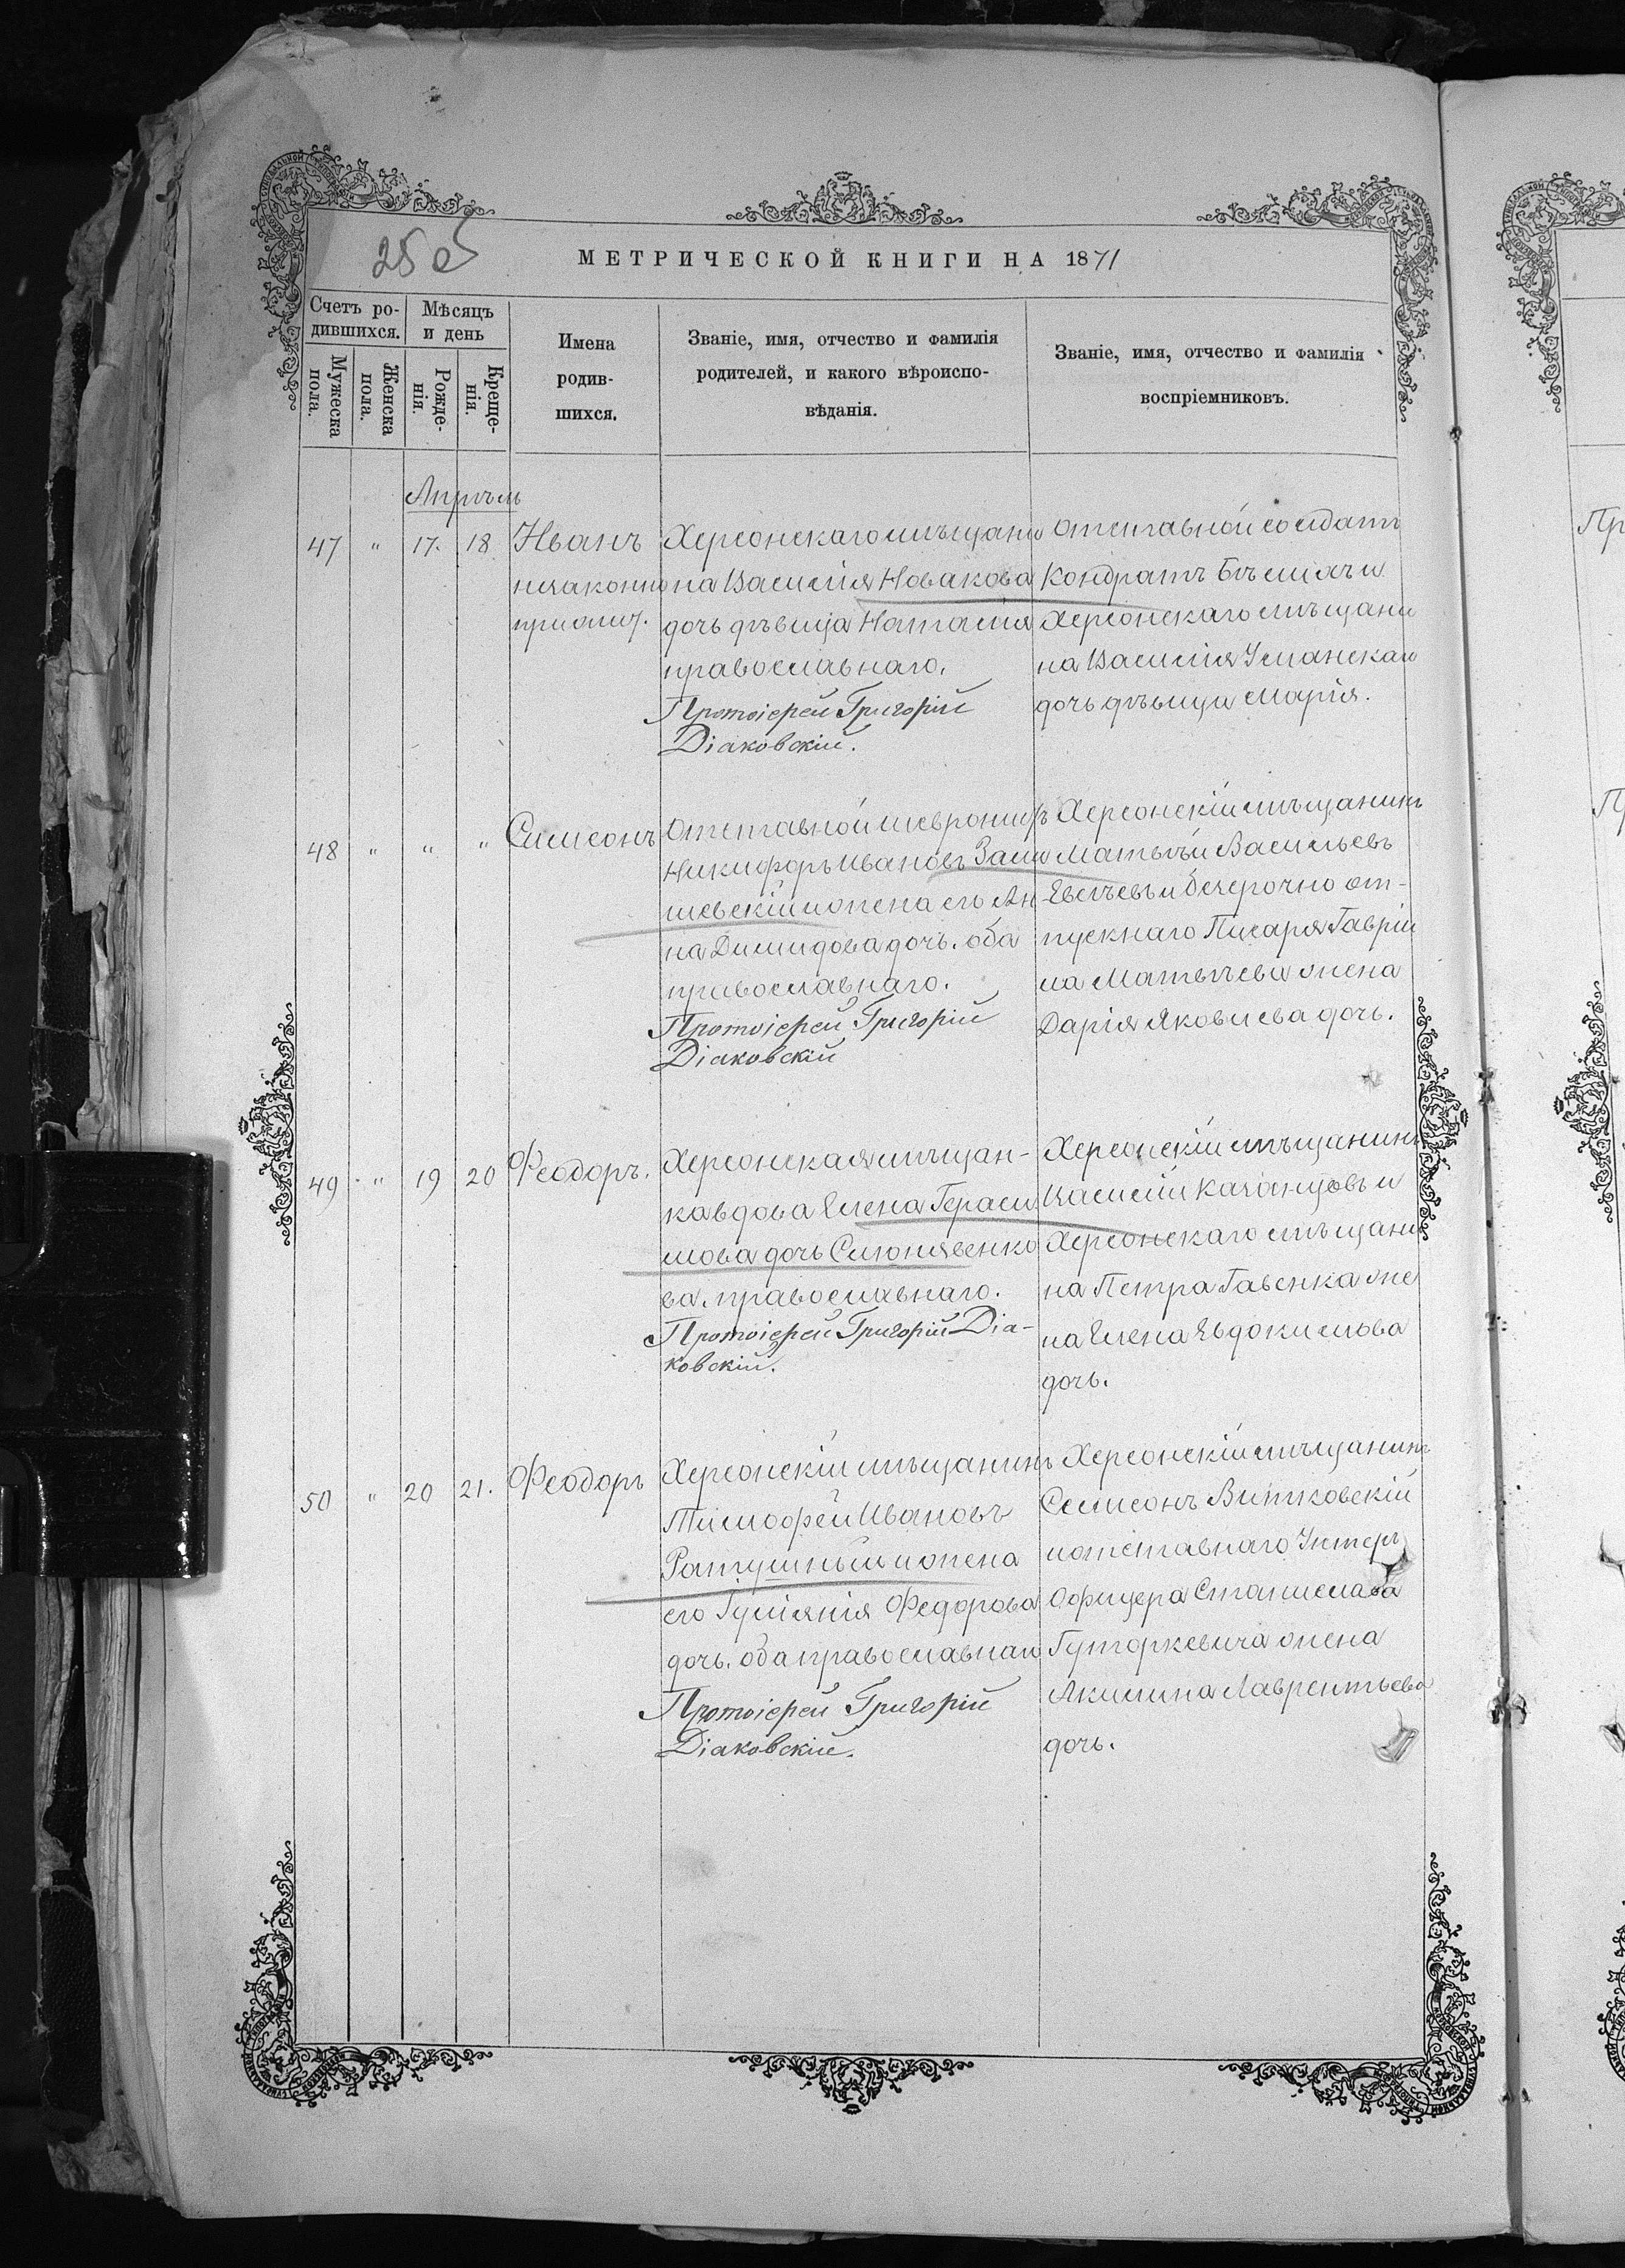 250
МЕТРИЧЕСКОЙ КНИГИ НА 1871
Счетъ ро-
дившихся.
Мѣсяцъ
и день
Мужеска
пола.
Женска
пола.
Рожде-
нія.
Креще-
нія.
Имена
родив-
шихся.
Званіе, имя, отчество и фамилія
родителей, и какого вѣроиспо-
вѣданія.
Званіе, имя, отчество и фамилія
воспріемниковъ.
Апрѣль
47 " 17. 18 Иванъ
незаконно
Херсонскаго мѣщани
на Василія Новакова
дочь дѣвица Наталія
православнаго.
Протоіерей Григорій
Діаковскій.
Отставной солдатъ
Кондратъ и
Херсонскаго мѣщани
на Василія Уманскаго
дочь дѣвица Марія.
48 " " " Симеонъ
Отставной
Никифоръ Ивановъ
и жена его Ан
на Димидова дочь. оба
православнаго.
Протоіерей Григорій
Діаковскій
Херсонскій мѣщанинъ
Матвѣй Васильевъ
и безсрочно от-
пускнаго Писаря Гаврі
ла Матвѣева жена
Дарія Яковлева дочь.
49 " 19 20 Феодоръ.
Херсонская мѣщан-
ка вдова Елена Гераси
мова дочь
ва. православнаго.
Протоіерей Григорій Діа-
ковскій.
Херсонскій мѣщанинъ
Василій Качанцовъ и
Херсонскаго мѣщани
на Петра Гавенка же
на Елена Евдокимова
дочь.
50 " 20 21. Феодоръ
Херсонскій мѣщанинъ
Тимофей Ивановъ
Ратушный и жена
его Гуліянія Федорова
дочь. оба православнаго
Протоіерей Григорій
Діаковскій.
Херсонскій мѣщанинъ
Семеонъ Витковскій
и отставнаго Унтеръ
Офицера Станислава
Гуторкевича жена
Акилина Лаврентьева
дочь.
Пр
П